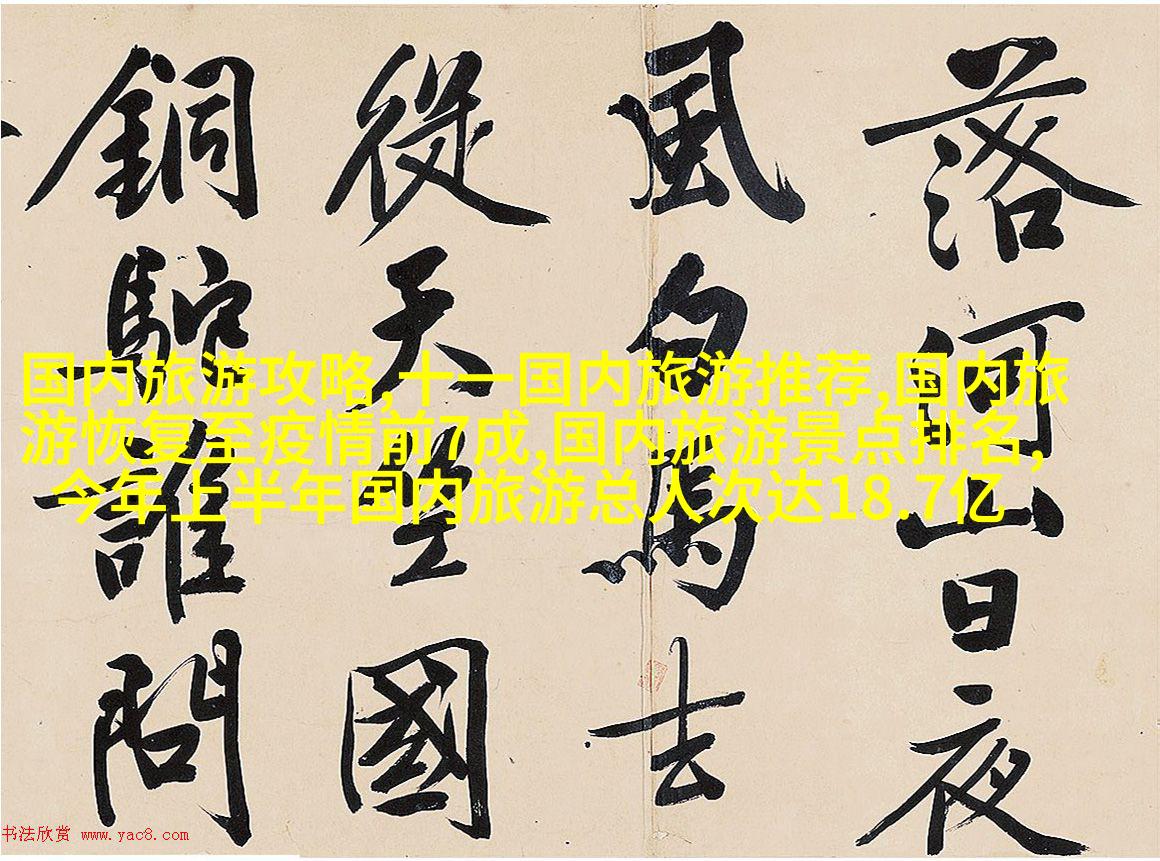 落河山日夜
風白馬去
從天竺國
銅駝誰問
国内旅游攻略,十一国内旅游推荐,国内旅
游恢复至疫情前7成,国内旅游景点排名,
今年上半年国内旅游总人次达18.7亿
书法欣赏 www.yac8.com